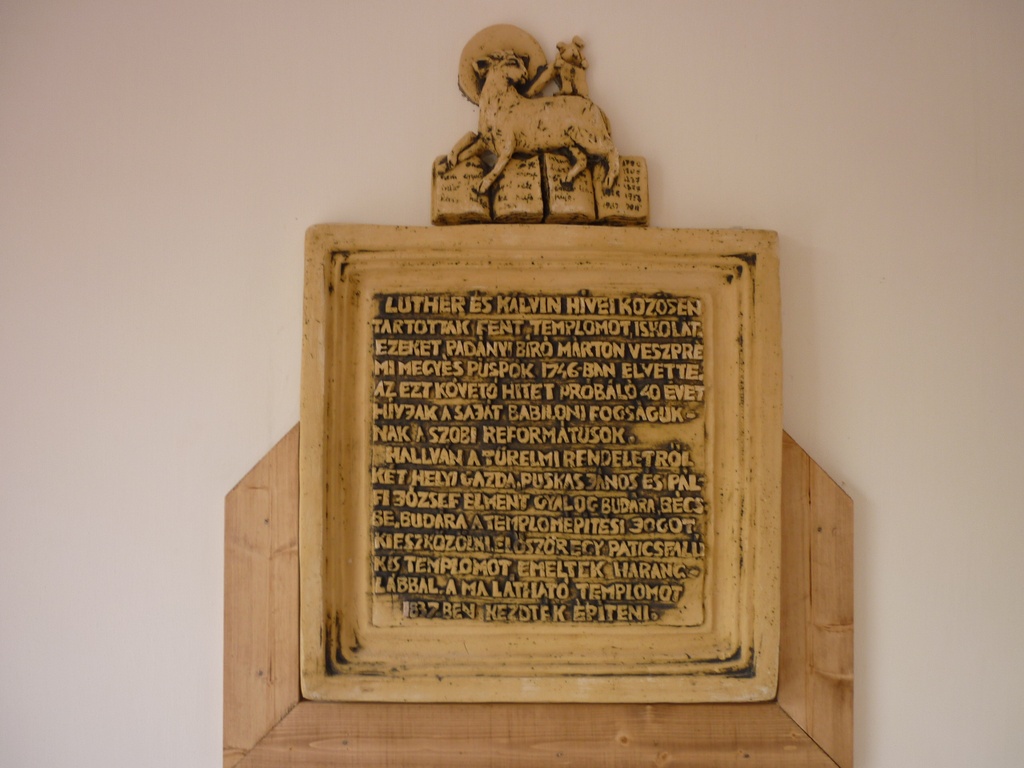 LUTHER ÉS KÁLVIN HIVEI KÖZÖSEN
TARTOTTÁK FENT TEMPLOMOT, ISKOLÁT.
EZEKET, PADÁNYI BIRÓ MÁRTON VESZPRÉ
MI MEGYÉS PÜSPÖK 1746-BAN ELVETTE.
AZ EZT KÖVETŐ HITET PRÓBÁLÓ 40 ÉVET
HIVJÁK A SAJÁT BABILONI FOGSÁGUK-
NAK A SZOBI REFORMÁTUSOK.
HALLVÁN A TÜRELMI RENDELETRŐL
KÉT HELYI GAZDA, PUSKÁS JÁNOS ÉS PÁL-
FI JÓZSEF ELMENT GYALOG BUDÁRA, BÉCS
BE, BUDÁRA A TEMPLOMÉPITÉSI JOGOT
KIESZKÖZÖLNI. ELŐSZÖR EGY PATICSFALÚ
KIS TEMPLOMOT EMELTEK HARANG-
LÁBBAL. A MA LÁTHATÓ TEMPLOMOT
1837-BEN KEZDTÉK ÉPITENI.